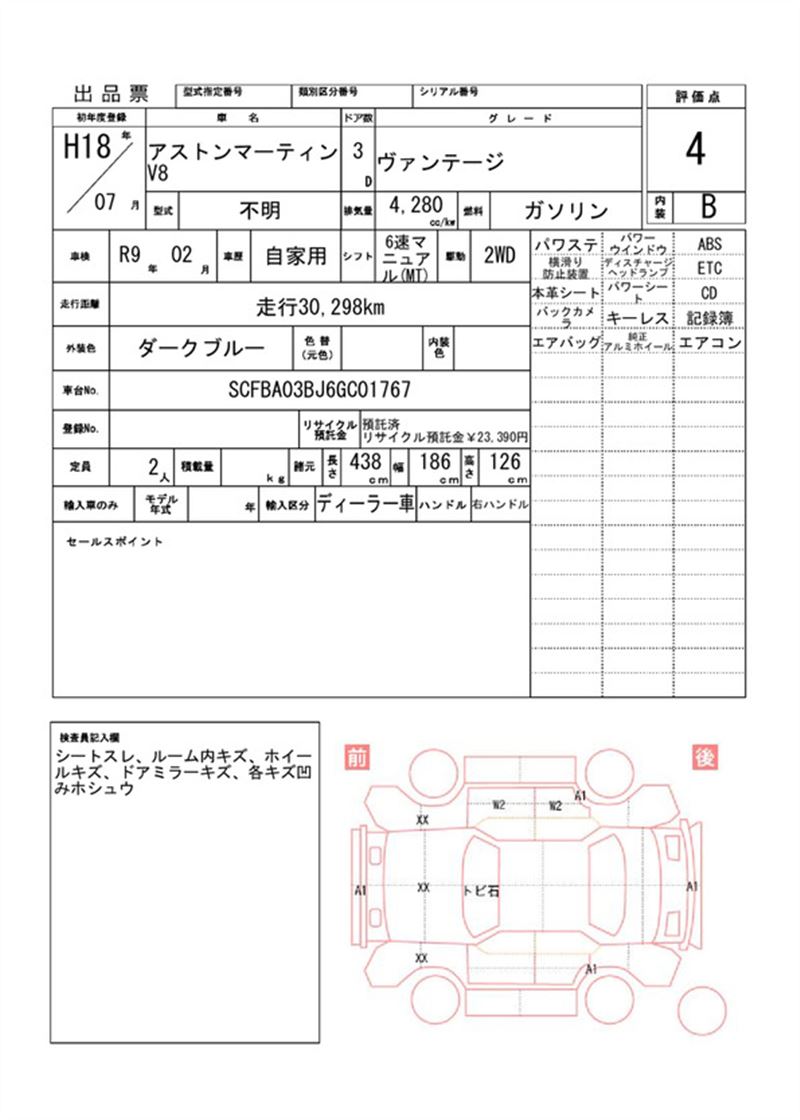 出品票
型式指定番号 類別区分番号 シリアル番号
評価点
初年度登録 車名 ドア数 グレード
H18 年
07 月
アストンマーティン
V8
3
D
ヴァンテージ
4
型式 不明 排気量 4,280 cc/kw 燃料 ガソリン
内装 B
車検 R9 年 02 月 車歴 自家用 シフト
6速マ
ニュア
ル(MT)
駆動 2WD
パワステ パワーウインドウ ABS
横滑り防止装置 ディスチャージヘッドランプ ETC
本革シート パワーシート CD
バックカメラ キーレス 記録簿
エアバッグ 純正アルミホイール エアコン
走行距離 走行30,298km
外装色 ダークブルー 色替(元色) 内装色
車台No. SCFBA03BJ6GC01767
登録No. リサイクル預託金
預託済
リサイクル預託金¥23,390円
定員 2人 積載量 kg 諸元 長さ 438cm 幅 186cm 高さ 126cm
輸入車のみ モデル年式 年 輸入区分 ディーラー車 ハンドル 右ハンドル
セールスポイント
検査員記入欄
シートスレ、ルーム内キズ、ホイー
ルキズ、ドアミラーキズ、各キズ凹
みホシュウ
前 後
W2 W2 A1
XX
A1 XX トビ石 A1
XX
A1